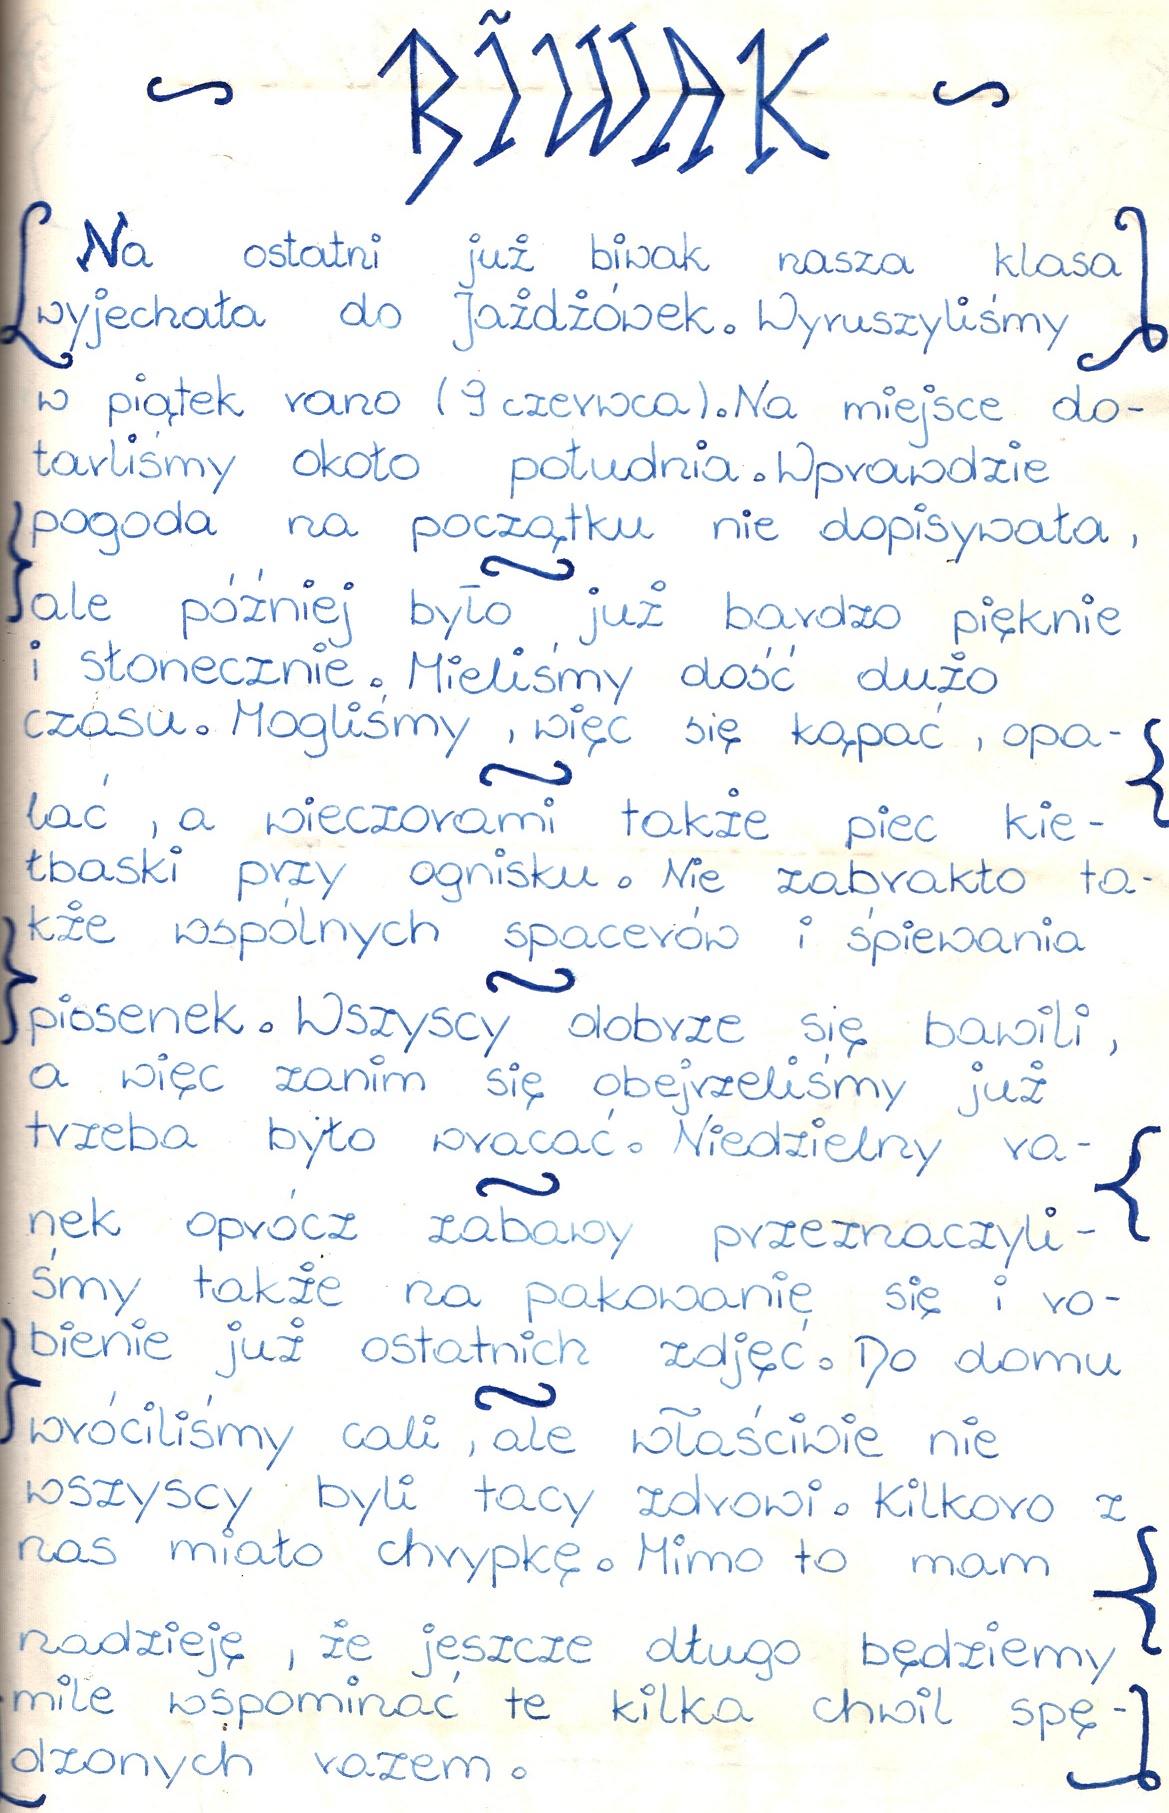 BIWAK
Na ostatni już biwak nasza klasa
wyjechała do Jażdżówek. Wyruszyliśmy
w piątek rano (9 czerwca). Na miejsce do-
tarliśmy około południa. Wprawdzie
pogoda na początku nie dopisywała,
ale później było już bardzo pięknie
i słonecznie. Mieliśmy dość dużo
czasu. Mogliśmy, więc się kąpać, opa-
lać, a wieczorami także piec kie-
łbaski przy ognisku. Nie zabrakło ta-
kże wspólnych spacerów i śpiewania
piosenek. Wszyscy dobrze się bawili,
a więc zanim się obejrzeliśmy już
trzeba było wracać. Niedzielny ra-
nek oprócz zabawy przeznaczyli-
śmy także na pakowanię się i ro-
bienie już ostatnich zdjęć. Do domu
wróciliśmy cali, ale właściwie nie
wszyscy byli tacy zdrowi. Kilkoro z
nas miało chrypkę. Mimo to mam
nadzieję, że jeszcze długo będziemy
mile wspominać te kilka chwil spę-
dzonych razem.